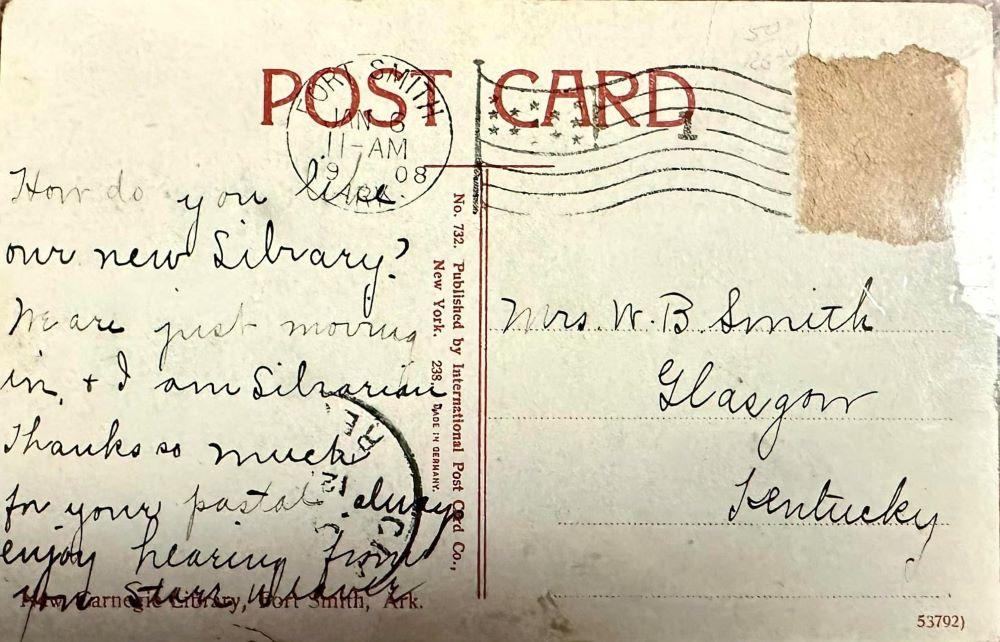 POST CARD
FORT SMITH
JAN 6
11-AM
1908
ARK.
1
How do you like
our new Library?
We are just moving
in, + I am Librarian
Thanks so much
for your postal always
enjoy hearing from
you
New Carnegie Library, Fort Smith, Ark.
No. 732. Published by International Post Card Co.,
New York. 238. MADE IN GERMANY.
Mrs. W. B Smith
Glasgow
Kentucky
53792)